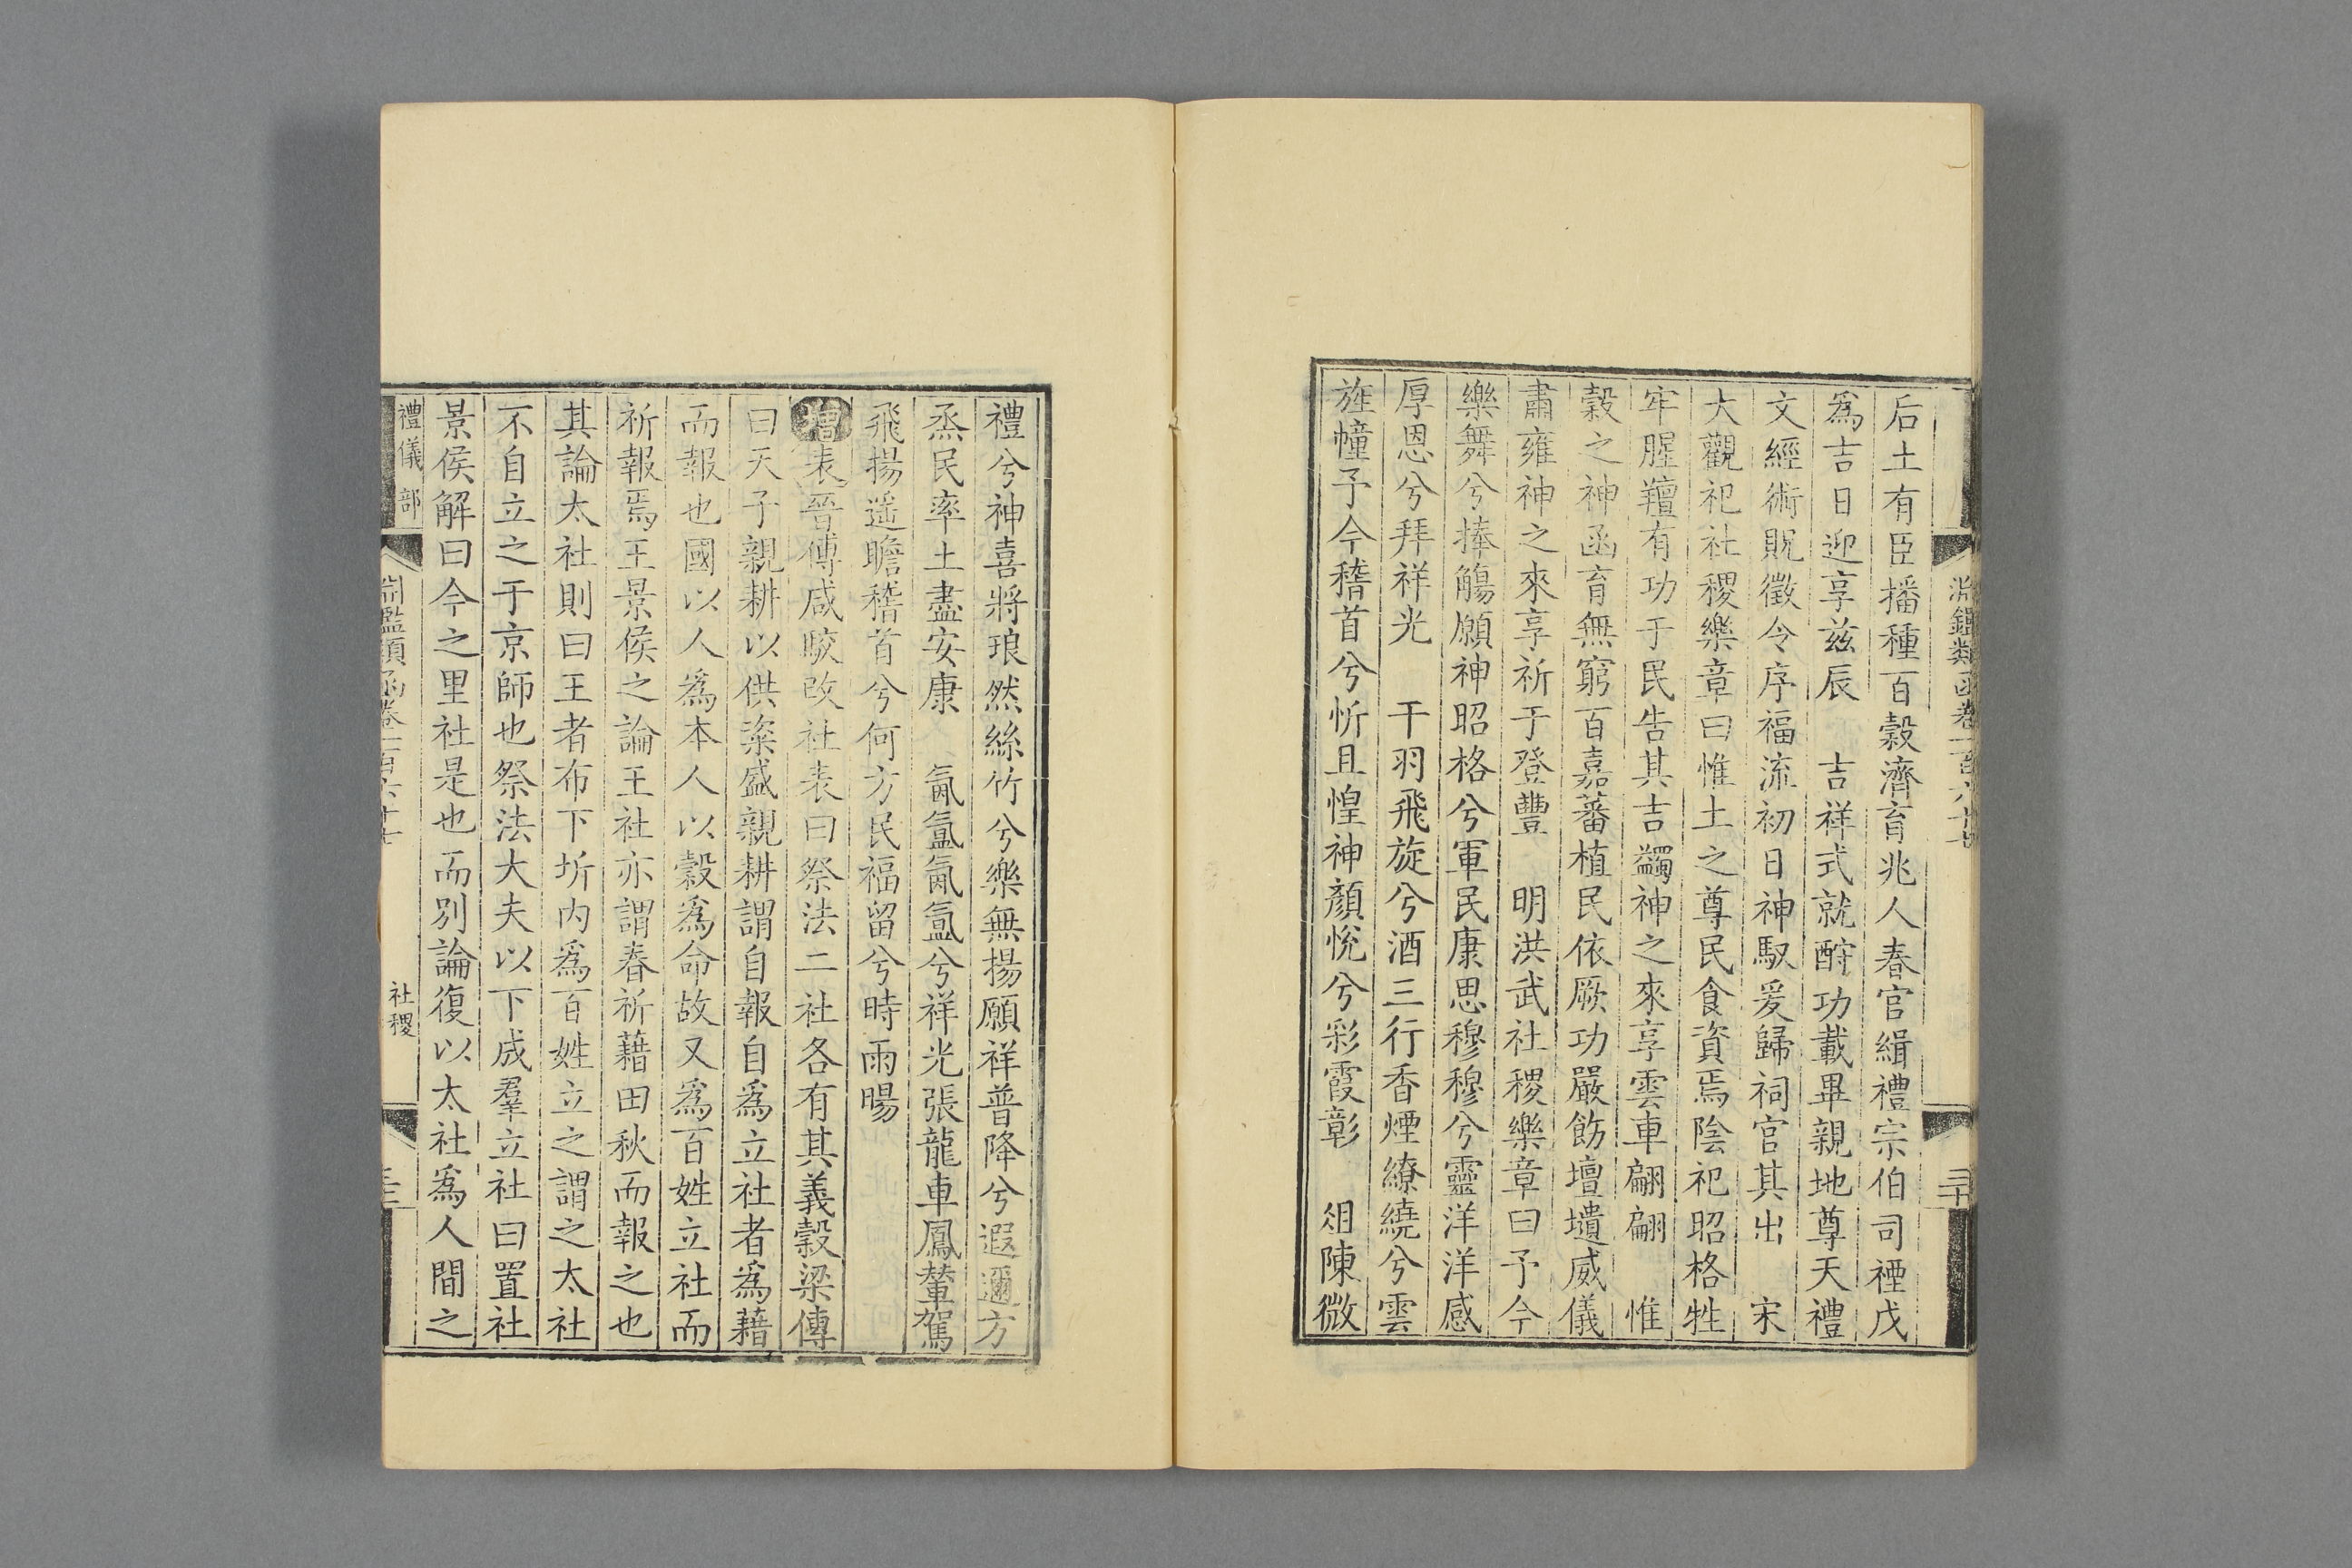 淵鑑類函卷一百六十七
三十
后土有臣播種百穀濟育兆人春官緝禮宗伯司禋戊
爲吉日迎享兹辰 吉祥式就酧功載畢親地尊天禮
文經術貺徵令序福流初日神馭爰歸祠官其出 宋
大觀祀社稷樂章曰惟土之尊民食資焉陰祀昭格牲
牢腥羶有功于民告其吉蠲神之來享雲車翩翩 惟
穀之神函育無窮百嘉蕃植民依厥功嚴飭壇壝威儀
肅雍神之來享祈于登豐 明洪武社稷樂章曰予今
樂舞兮捧觴願神昭格兮軍民康思穆穆兮靈洋洋感
厚恩兮拜祥光 干羽飛旋兮酒三行香煙繚繞兮雲
旌幢予今稽首兮忻且惶神顏悅兮彩霞彰 俎陳微
禮兮神喜將琅然絲竹兮樂無揚願祥普降兮遐邇方
烝民率土盡安康 氤氳氤氳兮祥光張龍車鳳輦駕
飛揚遥瞻稽首兮何方民福留兮時雨暘
增表晉傅咸駮改社表曰祭法二社各有其義穀梁傳
曰天子親耕以供粢盛親耕謂自報自爲立社者爲藉
而報也國以人爲本人以穀爲命故又爲百姓立社而
祈報焉王景侯之論王社亦謂春祈藉田秋而報之也
其論太社則曰王者布下圻内爲百姓立之謂之太社
不自立之于京師也祭法大夫以下成羣立社曰置社
景侯解曰今之里社是也而别論復以太社爲人間之
禮儀部
淵鑑類函卷一百六十七
社稷